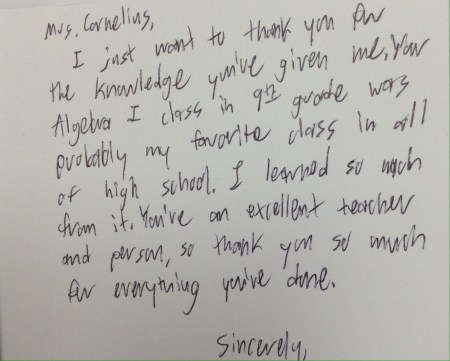 Mrs. Cornelius,
I just want to thank you for
the knowledge you've given me. Your
Algebra I class in 9th grade was
probably my favorite class in all
of high school. I learned so much
from it. You've an excellent teacher
and person, so thank you so much
for everything you've done.
Sincerely,